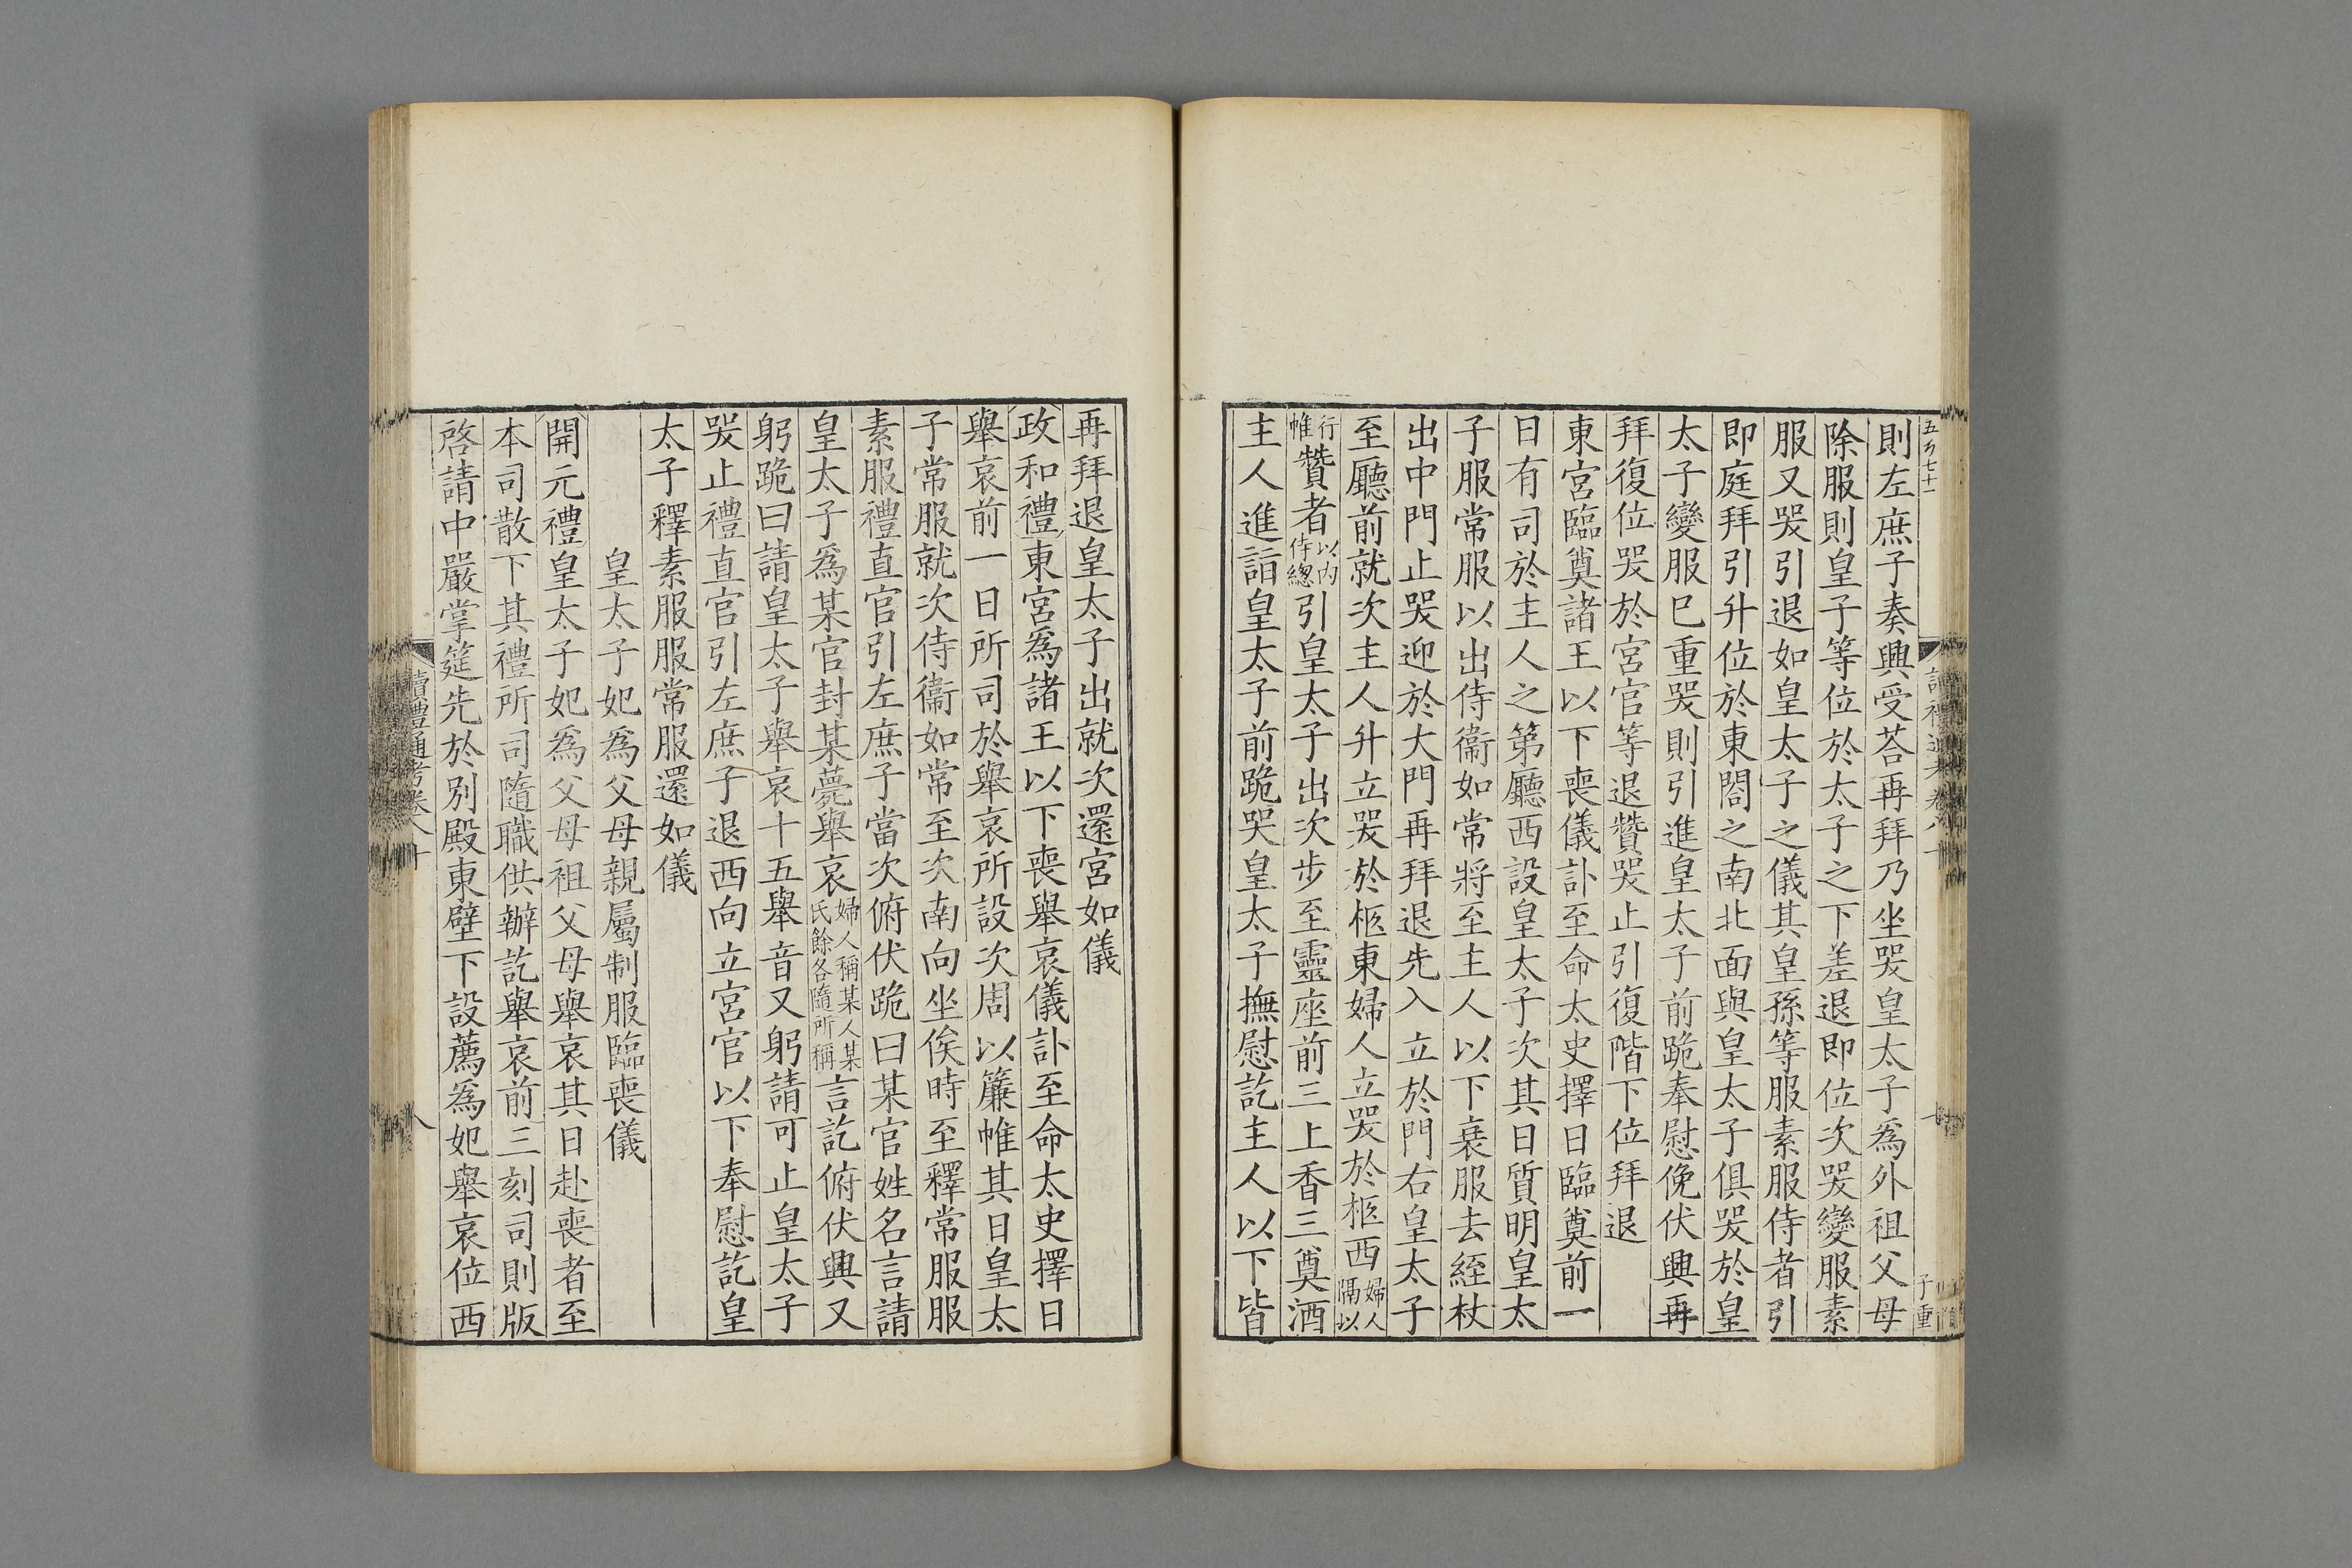 則左庶子奏興受荅再拜乃坐哭皇太子爲外祖父母
除服則皇子等位於太子之下差退即位次哭變服素
服又哭引退如皇太子之儀其皇孫等服素服侍者引
即庭拜引升位於東閤之南北面與皇太子俱哭於皇
太子變服巳重哭則引進皇太子前跪奉慰俛伏興再
拜復位哭於宮官等退贊哭止引復階下位拜退
東宮臨奠諸王以下喪儀訃至命太史擇日臨奠前一
日有司於主人之第廳西設皇太子次其日質明皇太
子服常服以出侍衞如常將至主人以下衰服去絰杖
出中門止哭迎於大門再拜退先入立於門右皇太子
至廳前就次主人升立哭於柩東婦人立哭於柩西婦人隔以
行帷贊者以内侍緫引皇太子出次步至靈座前三上香三奠酒
主人進詣皇太子前跪哭皇太子撫慰訖主人以下皆
再拜退皇太子出就次還宮如儀
政和禮東宮爲諸王以下喪舉哀儀訃至命太史擇日
舉哀前一日所司於舉哀所設次周以簾帷其日皇太
子常服就次侍衞如常至次南向坐俟時至釋常服服
素服禮直官引左庶子當次俯伏跪曰某官姓名言請
皇太子爲某官封某薨舉哀婦人稱某人某氏餘各隨所稱言訖俯伏興又
躬跪曰請皇太子舉哀十五舉音又躬請可止皇太子
哭止禮直官引左庶子退西向立宮官以下奉慰訖皇
太子釋素服服常服還如儀
皇太子妃爲父母親屬制服臨喪儀
開元禮皇太子妃爲父母祖父母舉哀其日赴喪者至
本司散下其禮所司隨職供辦訖舉哀前三刻司則版
啓請中嚴掌筵先於別殿東壁下設薦爲妃舉哀位西
讀禮通考卷八十
八